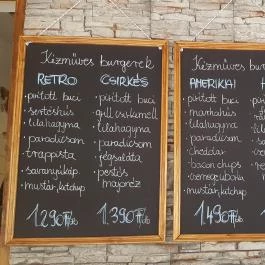 Kézműves burgerek
RETRO
• pirított buci
• sertéshús
• lilahagyma
• paradicsom
• trappista
• savanyúkáp.
• mustár, ketchup
1290 Ft/db
CSIRKÉS
• pirított buci
• grill csirkemell
• lilahagyma
• paradicsom
• jégsaláta
• pestós
majonéz
1.390 Ft/db
Kézműves bur
AMERIKAI
• pirított buci
• marhahús
• lilahagyma
• paradicsom
• cheddar
• bacon chips
• csemegeuborka
• mustár,
1.490 Ft/db